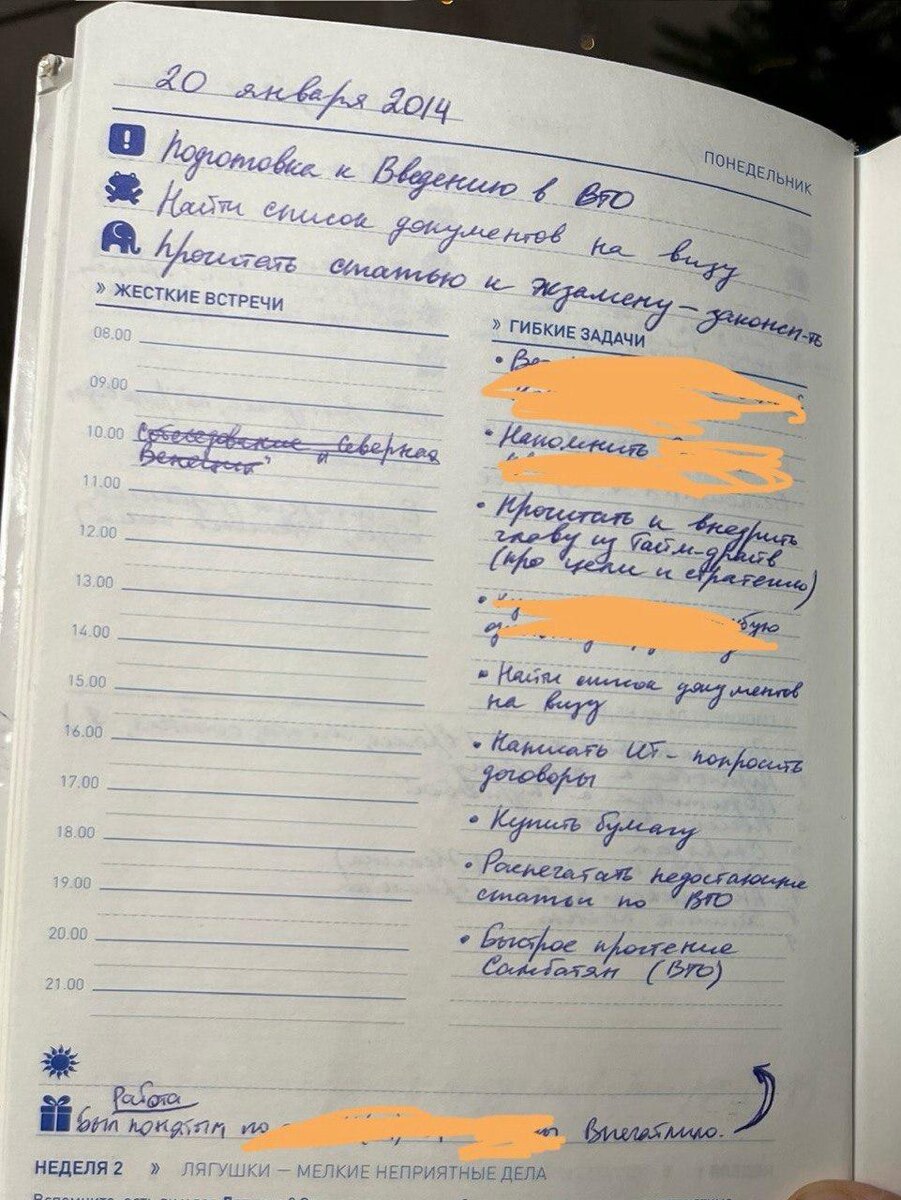 20 января 2014
ПОНЕДЕЛЬНИК
Подготовка к Введению в ВТО
Найти список документов на визу
Прочитать статью к экзамену – законсп-ть
» ЖЕСТКИЕ ВСТРЕЧИ
08.00
09.00
10.00 Собеседование "Северная
Венеция"
11.00
12.00
13.00
14.00
15.00
16.00
17.00
18.00
19.00
20.00
21.00
» ГИБКИЕ ЗАДАЧИ
• Напомнить
• Прочитать и внедрить
главу из Тайм-драйв
(про цели и стратегию)
• Найти список документов
на визу
• Написать ИТ – попросить
договоры
• Купить бумагу
• Распечатать недостающие
статьи по ВТО
• Быстрое прочтение
Самбатян (ВТО)
Работа
Был понятым по
Впечатлило.
НЕДЕЛЯ 2 » ЛЯГУШКИ — МЕЛКИЕ НЕПРИЯТНЫЕ ДЕЛА